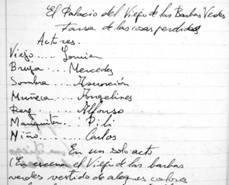 El Palacio del Viejo de las Barbas Verdes
Farsa de las rosas perdidas
Actores.
Viejo.... Jomian
Bruja.... Mercedes
Sombra... Asunción
Muñeca... Angelines
Rey... Alfonso
Mariquita: Pili
Niño... Carlos
En un solo acto
(En escena el Viejo de las barbas
verdes vestido de alegres colores